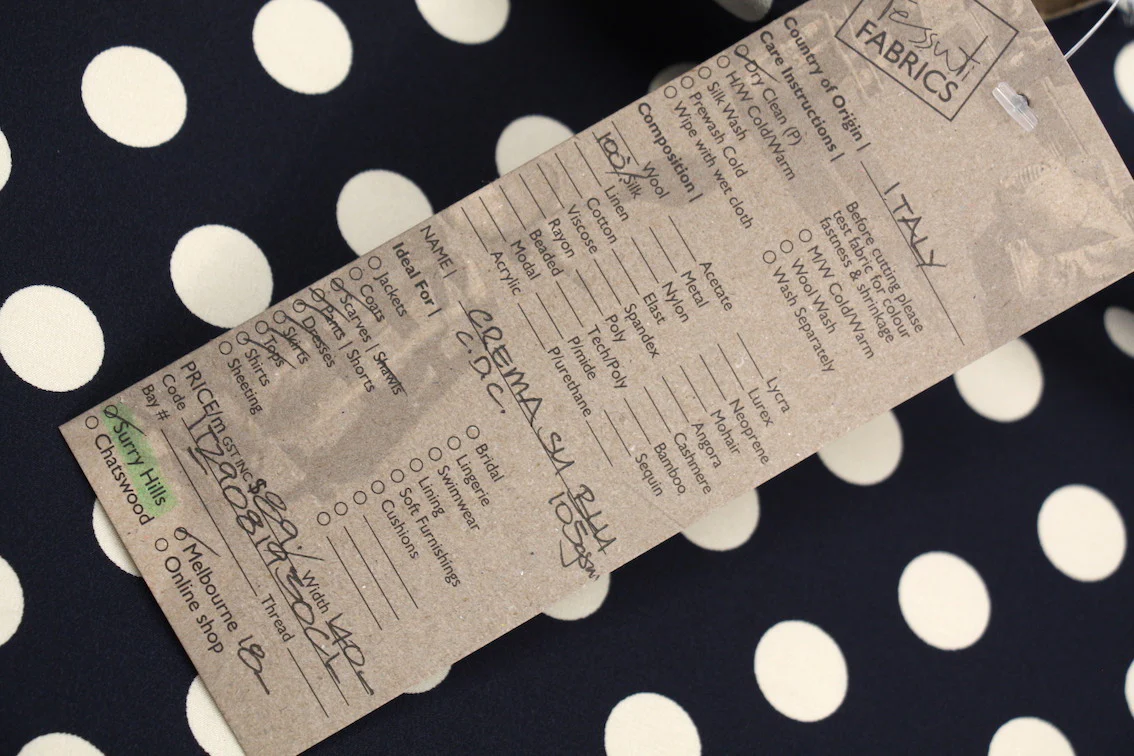 Tessuti
FABRICS
Country of Origin | ITALY
Care Instructions |
Dry Clean (P)
H/W Cold/Warm
Silk Wash
Prewash Cold
Wipe with wet cloth
Before cutting please
test fabric for colour
fastness & shrinkage
M/W Cold/Warm
Wool Wash
Wash Separately
Composition |
Wool Acetate Lycra
100% Silk Metal Lurex
Linen Nylon Neoprene
Cotton Elast Mohair
Viscose Spandex Angora
Rayon Poly Cashmere
Beaded Tech/Poly Bamboo
Modal P/mide Sequin
Acrylic P/urethane
NAME | CREMA SU BLU
C.D.C. 105gsm
Ideal For |
Jackets
Coats
Scarves | Shawls
Pants | Shorts
Dresses
Skirts
Tops
Shirts
Sheeting
Bridal
Lingerie
Swimwear
Lining
Soft Furnishings
Cushions
PRICE/m GST INC $89 Width 140
Code
Bay # Thread
Surry Hills Melbourne 18
Chatswood Online shop